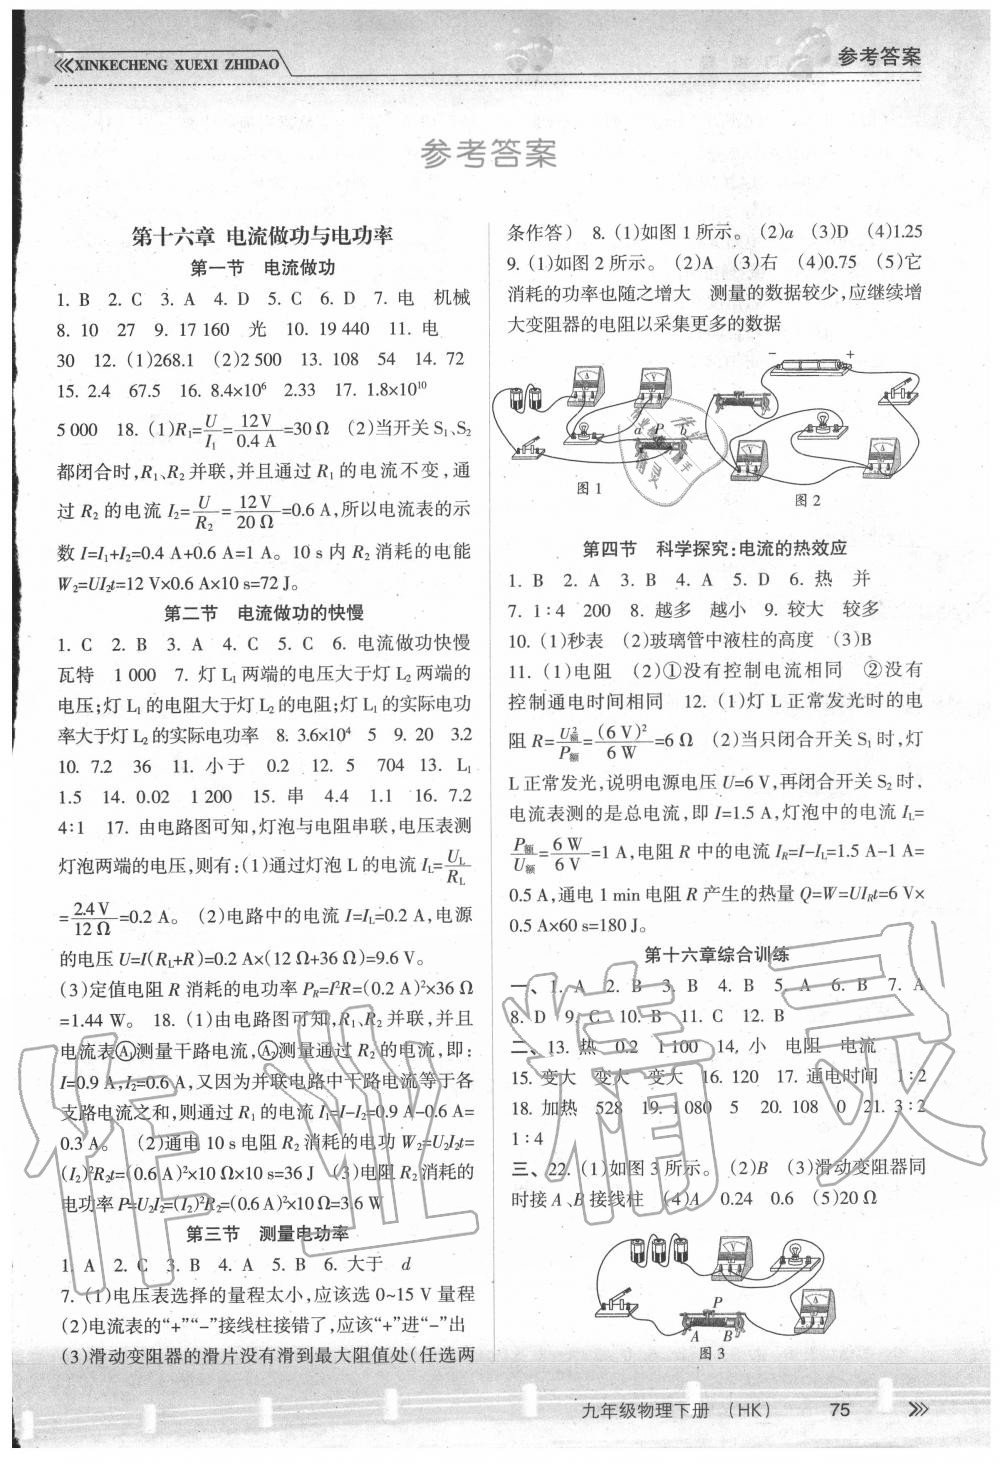 XINKECHENG XUEXI ZHIDAO
参考答案
参考答案
第十六章 电流做功与电功率
第一节 电流做功
1. B 2. C 3. A 4. D 5. C 6. D 7. 电 机械
8. 10 27 9. 17 160 光 10. 19 440 11. 电
30 12. (1)268.1 (2)2 500 13. 108 54 14. 72
15. 2.4 67.5 16. 8.4×10⁶ 2.33 17. 1.8×10¹⁰
5 000 18. (1)R₁=U/I₁=12 V/0.4 A=30 Ω (2)当开关 S₁、S₂
都闭合时,R₁、R₂ 并联,并且通过 R₁ 的电流不变,通
过 R₂ 的电流 I₂=U/R₂=12 V/20 Ω=0.6 A,所以电流表的示
数 I=I₁+I₂=0.4 A+0.6 A=1 A。10 s 内 R₂ 消耗的电能
W₂=UI₂t=12 V×0.6 A×10 s=72 J。
第二节 电流做功的快慢
1. C 2. B 3. A 4. C 5. C 6. 电流做功快慢
瓦特 1 000 7. 灯 L₁ 两端的电压大于灯 L₂ 两端的
电压;灯 L₁ 的电阻大于灯 L₂ 的电阻;灯 L₁ 的实际电功
率大于灯 L₂ 的实际电功率 8. 3.6×10⁴ 5 9. 20 3.2
10. 7.2 36 11. 小于 0.2 12. 5 704 13. L₁
1.5 14. 0.02 1 200 15. 串 4.4 1.1 16. 7.2
4∶1 17. 由电路图可知,灯泡与电阻串联,电压表测
灯泡两端的电压,则有:(1)通过灯泡 L 的电流 I_L=U_L/R_L
=2.4 V/12 Ω=0.2 A。 (2)电路中的电流 I=I_L=0.2 A,电源
的电压 U=I(R_L+R)=0.2 A×(12 Ω+36 Ω)=9.6 V。
(3)定值电阻 R 消耗的电功率 P_R=I²R=(0.2 A)²×36 Ω
=1.44 W。 18. (1)由电路图可知,R₁、R₂ 并联,并且
电流表Ⓐ₁测量干路电流,Ⓐ₂测量通过 R₂ 的电流,即:
I=0.9 A,I₂=0.6 A,又因为并联电路中干路电流等于各
支路电流之和,则通过 R₁ 的电流 I₁=I-I₂=0.9 A-0.6 A=
0.3 A。 (2)通电 10 s 电阻 R₂ 消耗的电功 W₂=U₂I₂t=
(I₂)²R₂t=(0.6 A)²×10 Ω×10 s=36 J (3)电阻 R₂ 消耗的
电功率 P=U₂I₂=(I₂)²R₂=(0.6 A)²×10 Ω=3.6 W
第三节 测量电功率
1. A 2. C 3. B 4. A 5. B 6. 大于 d
7. (1)电压表选择的量程太小,应该选 0~15 V 量程
(2)电流表的“+”“-”接线柱接错了,应该“+”进“-”出
(3)滑动变阻器的滑片没有滑到最大阻值处(任选两
条作答) 8. (1)如图 1 所示。 (2)a (3)D (4)1.25
9. (1)如图 2 所示。 (2)A (3)右 (4)0.75 (5)它
消耗的功率也随之增大 测量的数据较少,应继续增
大变阻器的电阻以采集更多的数据
A V a P b
图 1
- +
V A
图 2
第四节 科学探究:电流的热效应
1. B 2. A 3. B 4. A 5. D 6. 热 并
7. 1∶4 200 8. 越多 越小 9. 较大 较多
10. (1)秒表 (2)玻璃管中液柱的高度 (3)B
11. (1)电阻 (2)①没有控制电流相同 ②没有
控制通电时间相同 12. (1)灯 L 正常发光时的电
阻 R=U²额/P额=(6 V)²/6 W=6 Ω (2)当只闭合开关 S₁ 时,灯
L 正常发光,说明电源电压 U=6 V,再闭合开关 S₂ 时,
电流表测的是总电流,即 I=1.5 A,灯泡中的电流 I_L=
P额/U额=6 W/6 V=1 A,电阻 R 中的电流 I_R=I-I_L=1.5 A-1 A=
0.5 A,通电 1 min 电阻 R 产生的热量 Q=W=UI_Rt=6 V×
0.5 A×60 s=180 J。
第十六章综合训练
一、1. A 2. B 3. B 4. B 5. A 6. B 7. A
8. D 9. C 10. B 11. C 12. B
二、13. 热 0.2 1 100 14. 小 电阻 电流
15. 变大 变大 变大 16. 120 17. 通电时间 1∶2
18. 加热 528 19. 1 080 5 20. 108 0 21. 3∶2
1∶4
三、22. (1)如图 3 所示。 (2)B (3)滑动变阻器同
时接 A、B 接线柱 (4)A 0.24 0.6 (5)20 Ω
P
A B
图 3
九年级物理下册 (HK) 75
作业精灵